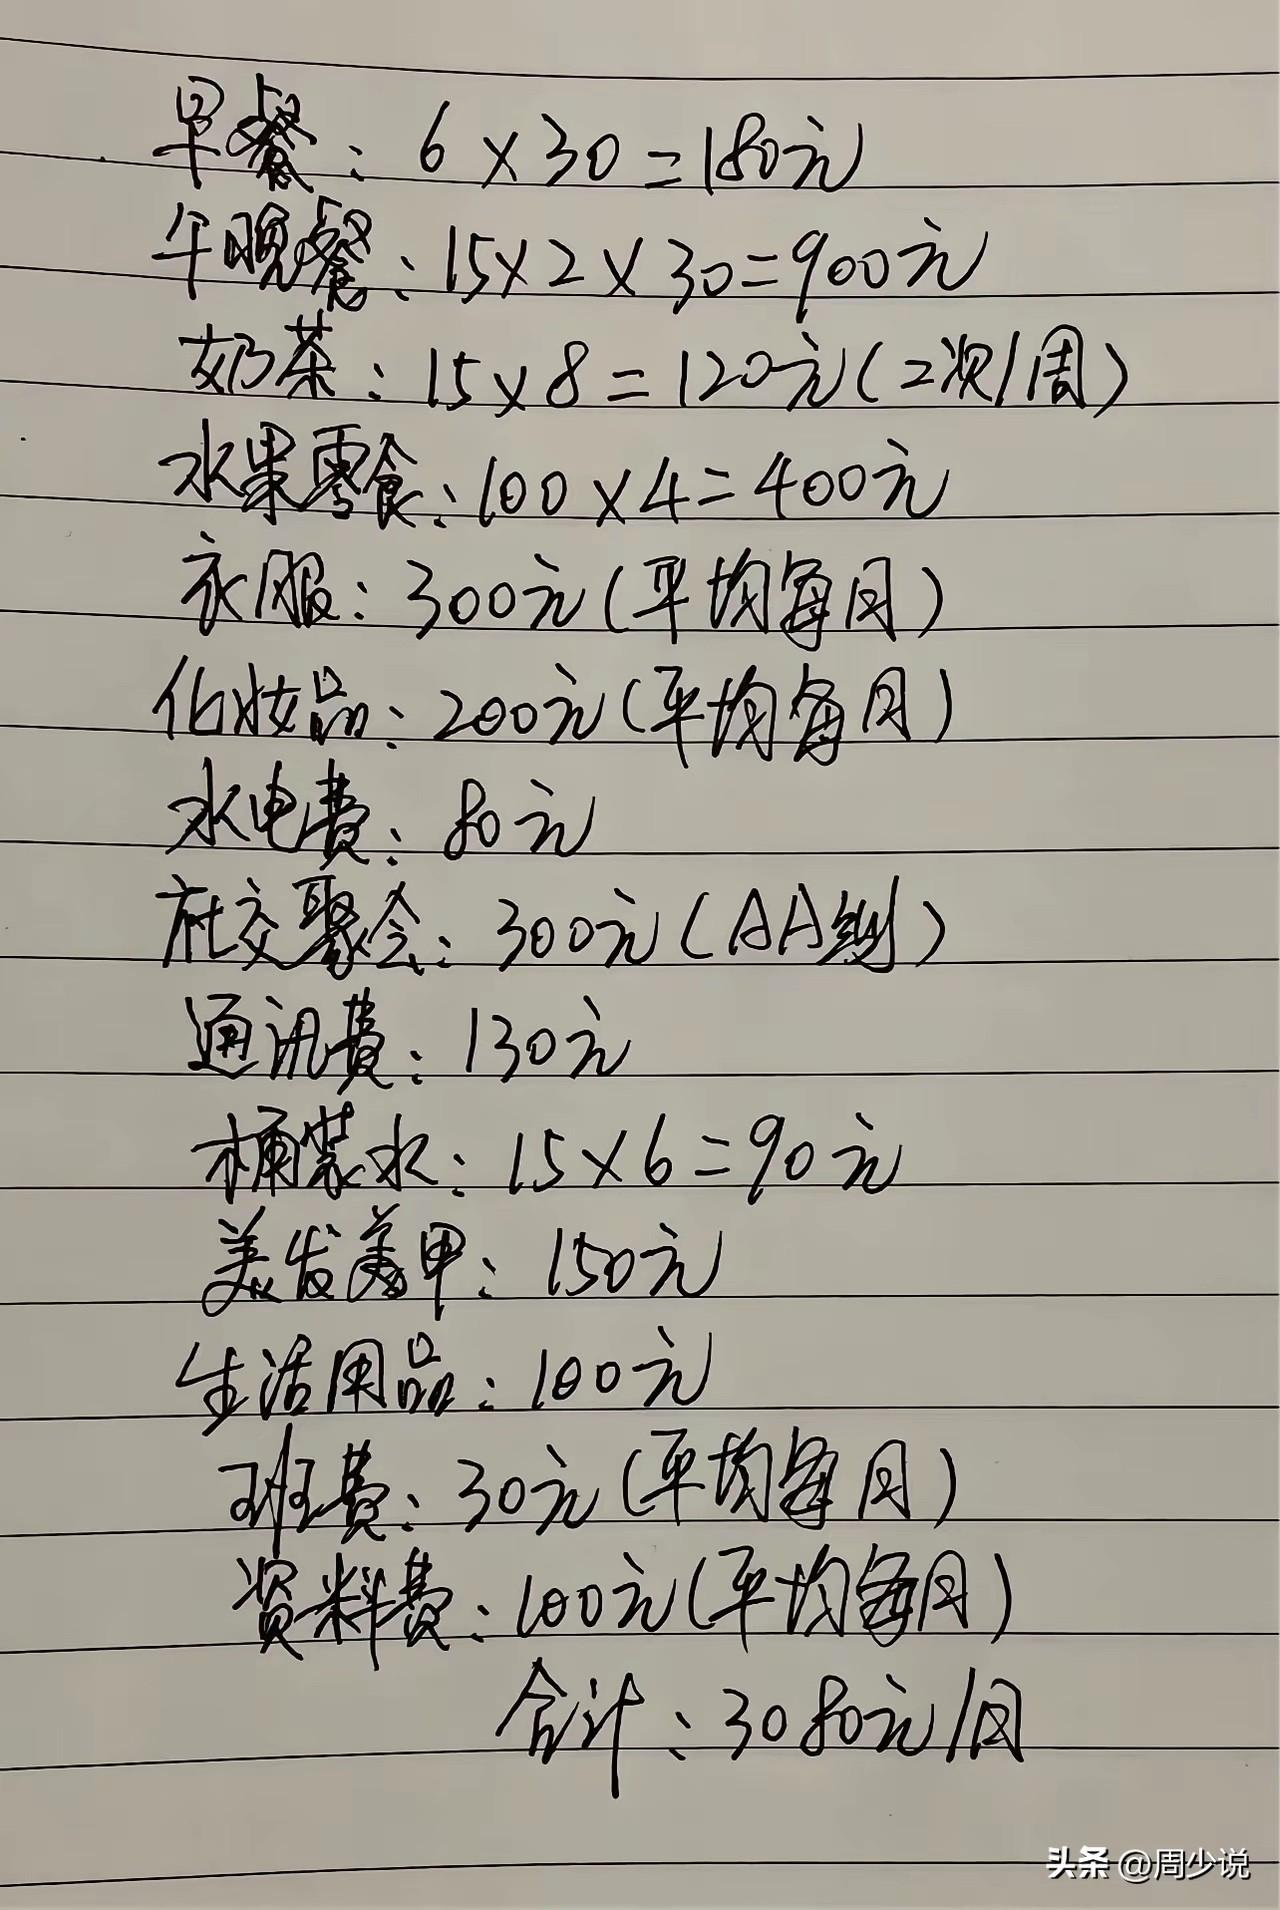 早餐：6×30=180元
午晚餐：15×2×30=900元
奶茶：15×8=120元(2次/周)
水果零食：100×4=400元
衣服：300元(平均每月)
化妆品：200元(平均每月)
水电费：80元
社交聚会：300元(AA制)
通讯费：130元
桶装水：15×6=90元
美发美甲：150元
生活用品：100元
班费：30元(平均每月)
资料费：100元(平均每月)
合计：3080元/月
头条 @周少说